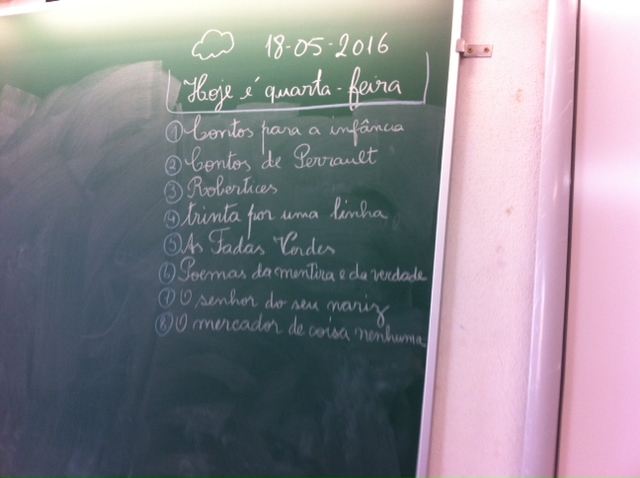 18-05-2016
Hoje é quarta-feira
1 Contos para a infância
2 Contos de Perrault
3 Robertices
4 trinta por uma linha
5 As Fadas Verdes
6 Poemas da mentira e da verdade
7 O senhor do seu nariz
8 O mercador de coisa nenhuma